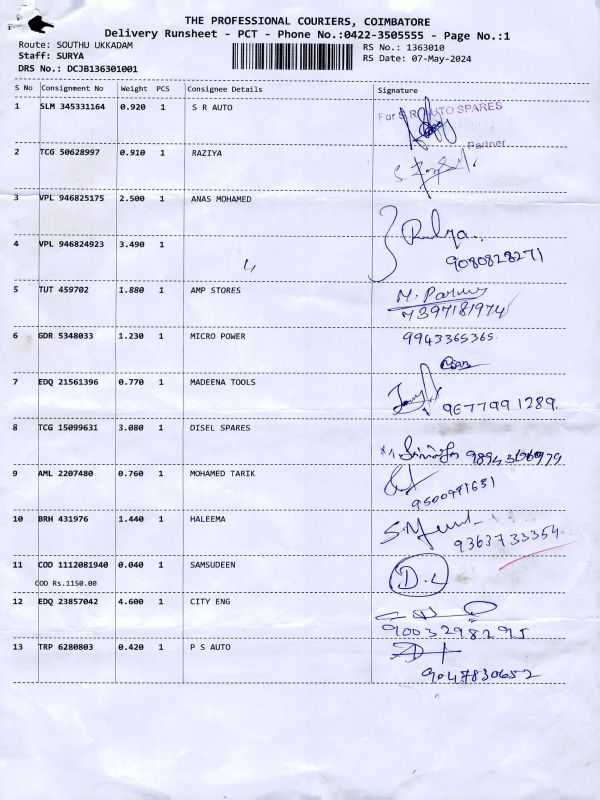 THE PROFESSIONAL COURIERS, COIMBATORE
Delivery Runsheet - PCT - Phone No.:0422-3505555 - Page No.:1
Route: SOUTHU UKKADAM
RS No.: 1363010
Staff: SURYA
RS Date: 07-May-2024
DRS No.: DCJB136301001
S No Consignment No Weight PCS Consignee Details Signature
1 SLM 345331164 0.920 1 S R AUTO
For S R AUTO SPARES
Partner
2 TCG 50628997 0.910 1 RAZIYA
3 VPL 946825175 2.500 1 ANAS MOHAMED
4 VPL 946824923 3.490 1
9080828271
5 TUT 459702 1.880 1 AMP STORES
7397181974
6 GDR 5348033 1.230 1 MICRO POWER 9943365365
7 EDQ 21561396 0.770 1 MADEENA TOOLS
9677991289
8 TCG 15099631 3.080 1 DISEL SPARES
9 AML 2207480 0.760 1 MOHAMED TARIK
10 BRH 431976 1.440 1 HALEEMA
9363733354
11 COD 1112081940 0.040 1 SAMSUDEEN D.L
COD Rs.1150.00
12 EDQ 23857042 4.600 1 CITY ENG
9003298295
13 TRP 6280803 0.420 1 P S AUTO
9047830652